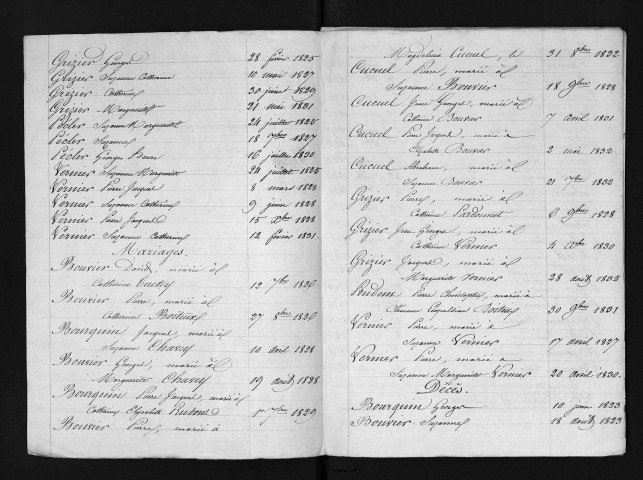 Grizier George 28 février 1825
Grizier Suzanne Catherine 10 mai 1827
Grizier Catherine 30 juin 1829
Grizier Marguerite 21 mai 1831
Pécler Suzanne Marguerite 24 juillet 1825
Pécler Suzanne 18 1827
Pécler George 16 juillet 1830
Vernier Suzanne Marguerite 24 juillet 1825
Vernier Pierre Jacques 8 mars 1828
Vernier Suzanne Catherine 9 juin 1828
Vernier Pierre Jacques 15 Xbre 1828
Vernier Suzanne Catherine 12 février 1831.
Mariages.
Bouvier David, marié à
Catherine 12 7bre 1826
Bouvier Pierre, marié à
Catherine Boiteux 27 8bre 1826
Bourquin Jacques, marié à
Suzanne Chavey 10 avril 1828
Bouvier George, marié à
Marguerite Chavey 19 août 1828
Bourquin Pierre Jacques, marié à
Catherine Elisabeth 7bre 1829
Bouvier Pierre, marié à
Magdeleine Cucuel, le 31 8bre 1832
Cucuel Pierre, marié à
Suzanne Bouvier 18 9bre 1828
Cucuel Jean George, marié à
Catherine Bouvier 7 avril 1831
Cucuel Pierre Jacques, marié à
Elisabeth Bouvier 2 mai 1832
Cucuel Abraham, marié à
Suzanne Bouvier 21 7bre 1832
Grizier Pierre, marié à
Catherine 6 9bre 1828
Grizier Jean George, marié à
Catherine Vernier 4 Xbre 1830
Grizier Jacques, marié à
Marguerite Vernier 28 août 1832
Pierre Christophe, marié à
Léopoldine Boiteux 30 9bre 1831
Vernier Pierre, marié à
Suzanne Vernier 17 avril 1827
Vernier Pierre, marié à
Suzanne Marguerite Vernier 20 avril 1830.
Décès.
Bourquin George 10 juin 1823
Bouvier Suzanne 18 août 1823